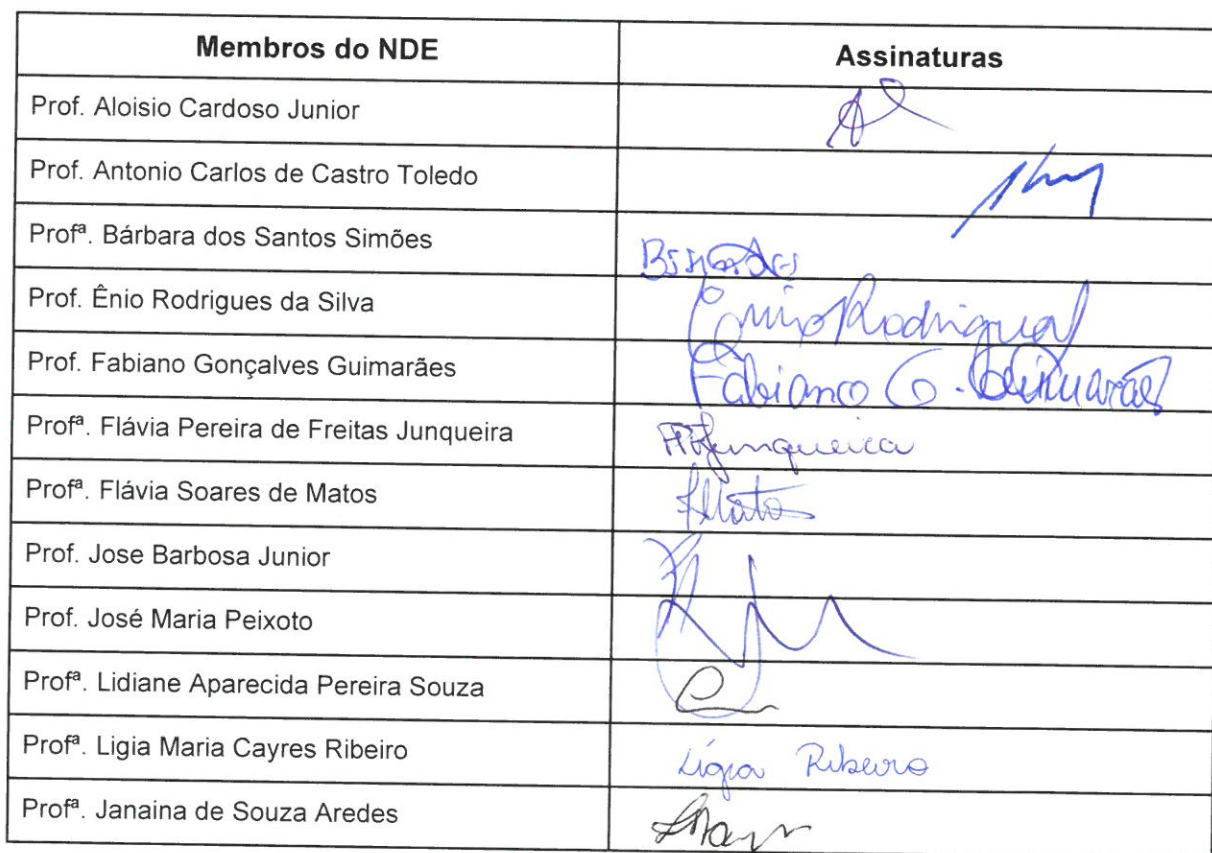 Membros do NDE Assinaturas
Prof. Aloisio Cardoso Junior
Prof. Antonio Carlos de Castro Toledo
Profª. Bárbara dos Santos Simões
Prof. Ênio Rodrigues da Silva Ênio Rodrigues
Prof. Fabiano Gonçalves Guimarães Fabiano G. Guimarães
Profª. Flávia Pereira de Freitas Junqueira FPFJunqueira
Profª. Flávia Soares de Matos
Prof. Jose Barbosa Junior
Prof. José Maria Peixoto
Profª. Lidiane Aparecida Pereira Souza
Profª. Ligia Maria Cayres Ribeiro Lígia Ribeiro
Profª. Janaina de Souza Aredes